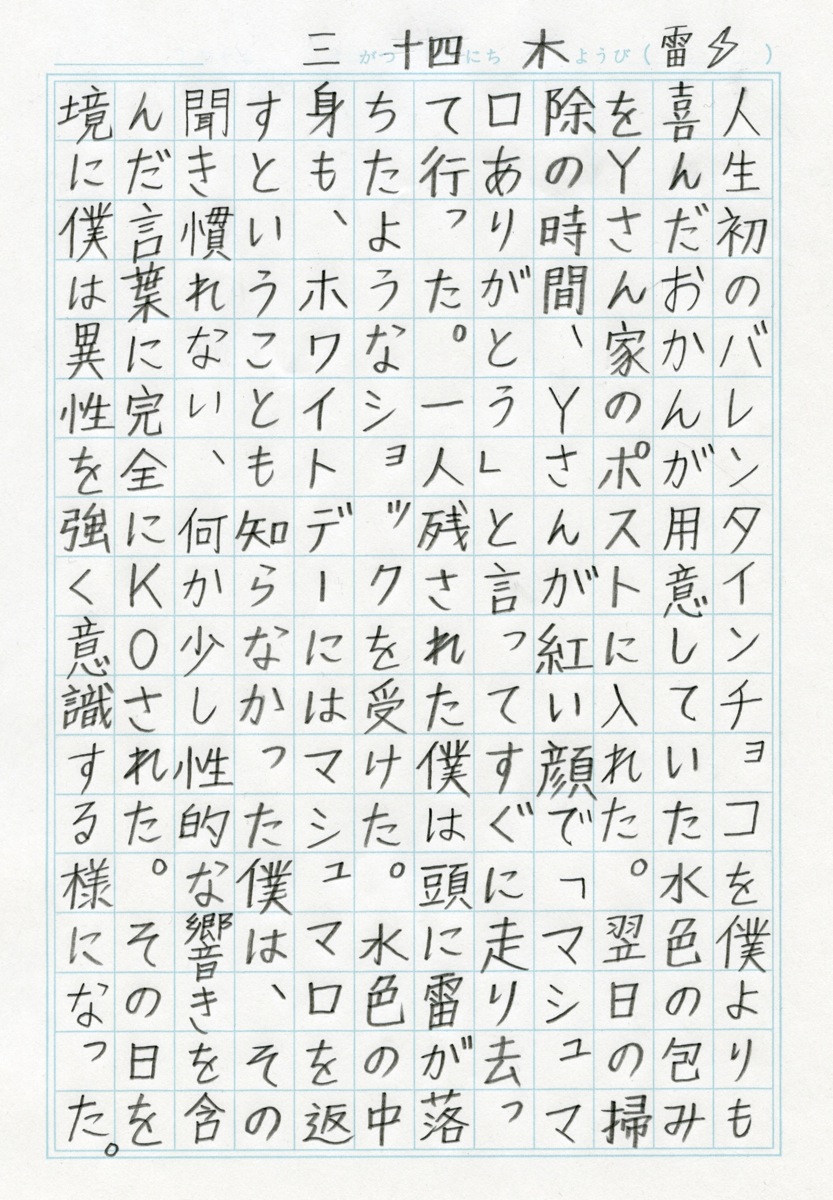 三がつ十四にち 木ようび(雷⚡)
人生初のバレンタインチョコを僕よりも
喜んだおかんが用意していた水色の包み
をYさん家のポストに入れた。翌日の掃
除の時間、Yさんが紅い顔で「マシュマ
ロありがとう」と言ってすぐに走り去っ
て行った。一人残された僕は頭に雷が落
ちたようなショックを受けた。水色の中
身も、ホワイトデーにはマシュマロを返
すということも知らなかった僕は、その
聞き慣れない、何か少し性的な響きを含
んだ言葉に完全にKOされた。その日を
境に僕は異性を強く意識する様になった。